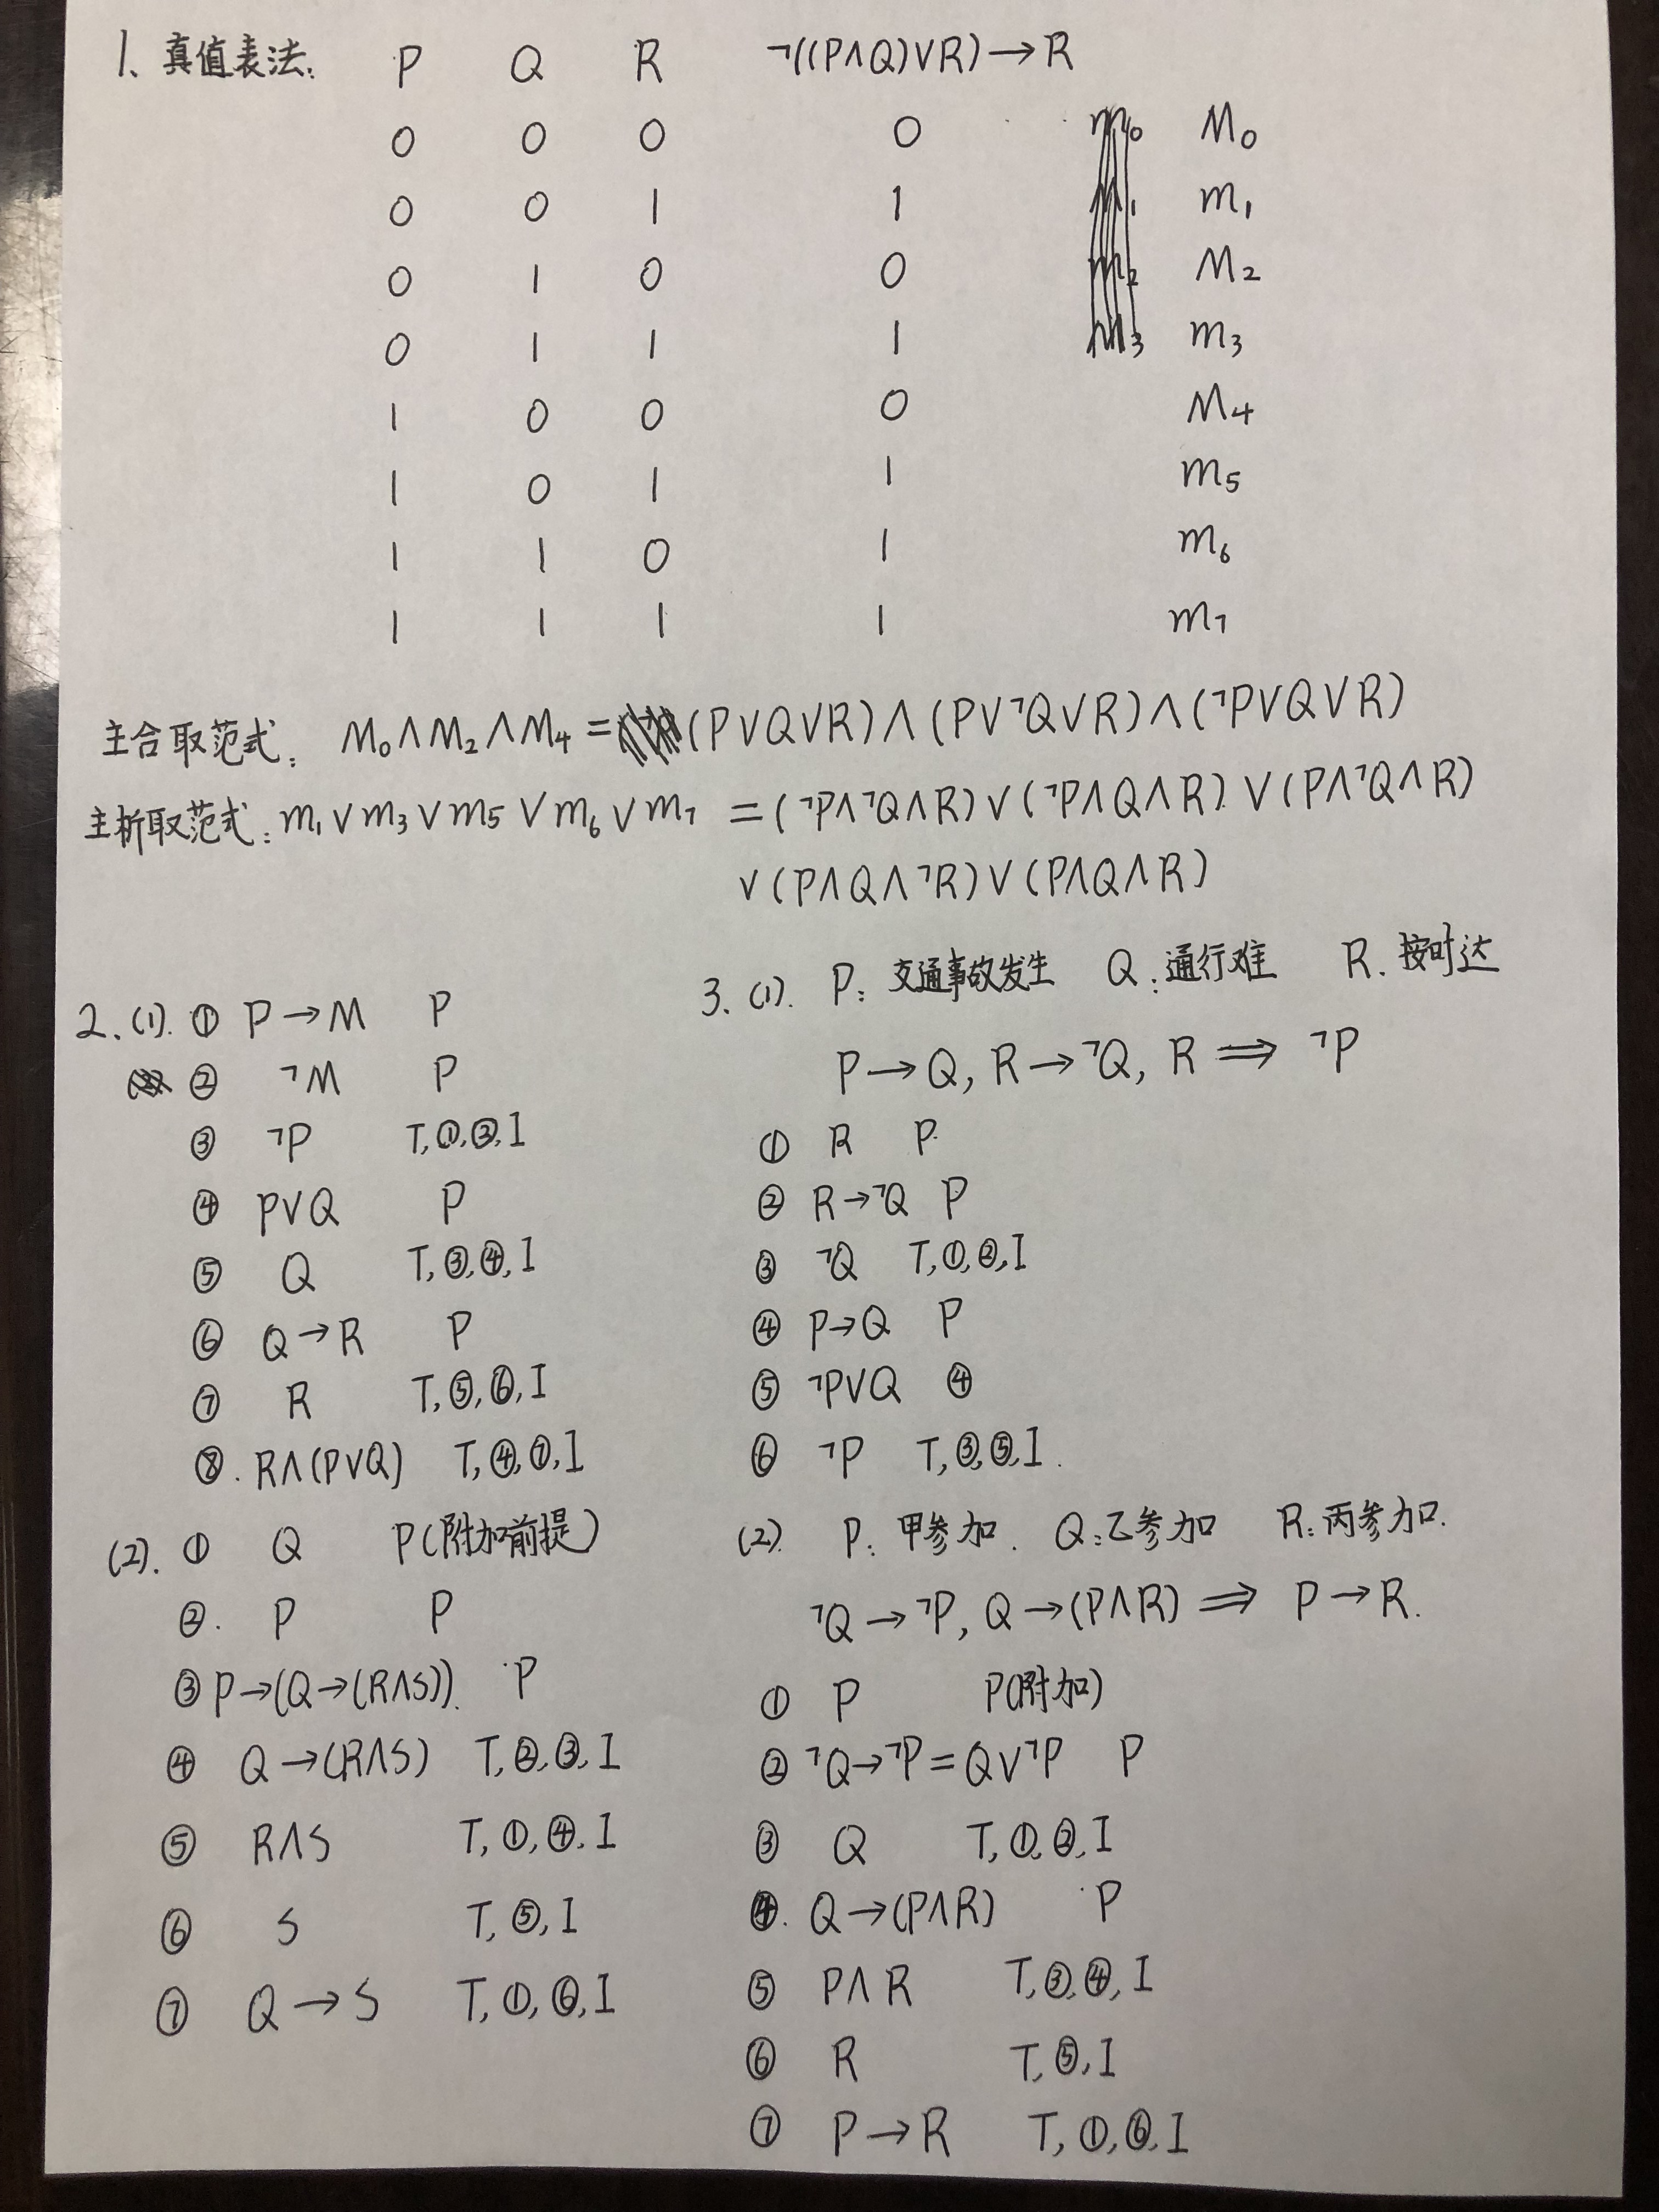 1、真值表法: P Q R ¬((P∧Q)∨R)→R
0 0 0 0 M₀
0 0 1 1 m₁
0 1 0 0 M₂
0 1 1 1 m₃
1 0 0 0 M₄
1 0 1 1 m₅
1 1 0 1 m₆
1 1 1 1 m₇
主合取范式: M₀∧M₂∧M₄=(P∨Q∨R)∧(P∨¬Q∨R)∧(¬P∨Q∨R)
主析取范式: m₁∨m₃∨m₅∨m₆∨m₇ =(¬P∧¬Q∧R)∨(¬P∧Q∧R)∨(P∧¬Q∧R)
∨(P∧Q∧¬R)∨(P∧Q∧R)
2.(1). ① P→M P
② ¬M P
③ ¬P T,①,②,I
④ P∨Q P
⑤ Q T,③,④,I
⑥ Q→R P
⑦ R T,⑤,⑥,I
⑧. R∧(P∨Q) T,④,⑦,I
(2). ① Q P(附加前提)
②. P P
③ P→(Q→(R∧S)). P
④ Q→(R∧S) T,②,③,I
⑤ R∧S T,①,④,I
⑥ S T,⑤,I
⑦ Q→S T,①,⑥,I
3.(1). P: 交通事故发生 Q:通行难 R.按时达
P→Q, R→¬Q, R ⇒ ¬P
① R P
② R→¬Q P
③ ¬Q T,①,②,I
④ P→Q P
⑤ ¬P∨Q ④
⑥ ¬P T,③,⑤,I.
(2). P: 甲参加. Q:乙参加 R:丙参加.
¬Q→¬P, Q→(P∧R) ⇒ P→R.
① P P(附加)
② ¬Q→¬P=Q∨¬P P
③ Q T,①,②,I
④. Q→(P∧R) P
⑤ P∧R T,③,④,I
⑥ R T,⑤,I
⑦ P→R T,①,⑥,I